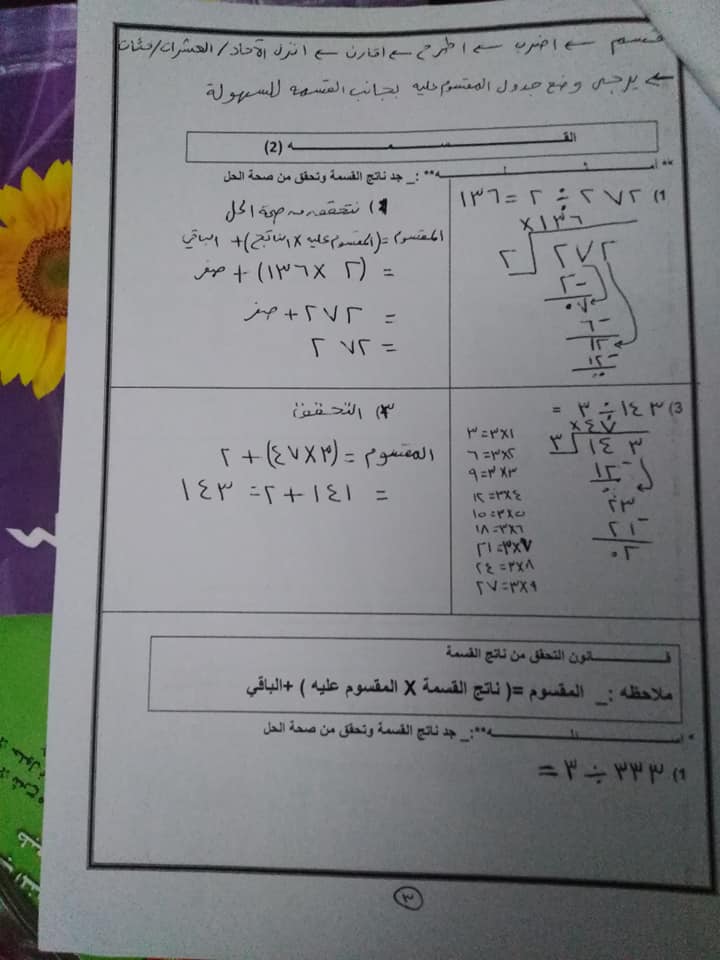 قسم ← اضرب ← اطرح ← اقارن ← انزل الآحاد/ العشرات/ مئات
← يرجى وضع جدول المقسوم عليه بجانب القسمة للسهولة
القـــــــمه (2)
**:_ جد ناتج القسمة وتحقق من صحة الحل
1) ٢٧٢ ÷ ٢ = ١٣٦
×١٣٦
٢ ٢٧٢
٢-
٠٧
٦-
١٢
١٢-
٠٠
1) نتحقق من صحة الحل
المقسوم = (المقسوم عليه × الناتج) + الباقي
= (٢ × ١٣٦) + صفر
= ٢٧٢ + صفر
= ٢٧٢
3) ١٤٣ ÷ ٣ =
×٤٧
٣ ١٤٣
١٢-
٢٣
٢١-
٠٢
٣=٣×١
٦=٣×٢
٩=٣×٣
١٢=٣×٤
١٥=٣×٥
١٨=٣×٦
٢١=٣×٧
٢٤=٣×٨
٢٧=٣×٩
٣) التحقق
المقسوم = (٣×٤٧) + ٢
= ١٤١ + ٢ = ١٤٣
قـــــــانون التحقق من ناتج القسمة
ملاحظه :_ المقسوم =( ناتج القسمة X المقسوم عليه ) +الباقي
**:_ جد ناتج القسمة وتحقق من صحة الحل
1) ٣٣٣ ÷ ٣ =
٣